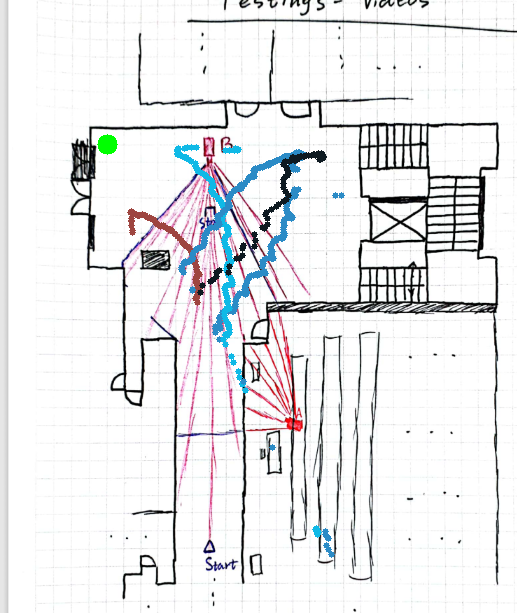 Testings - Videos
B
A
Start